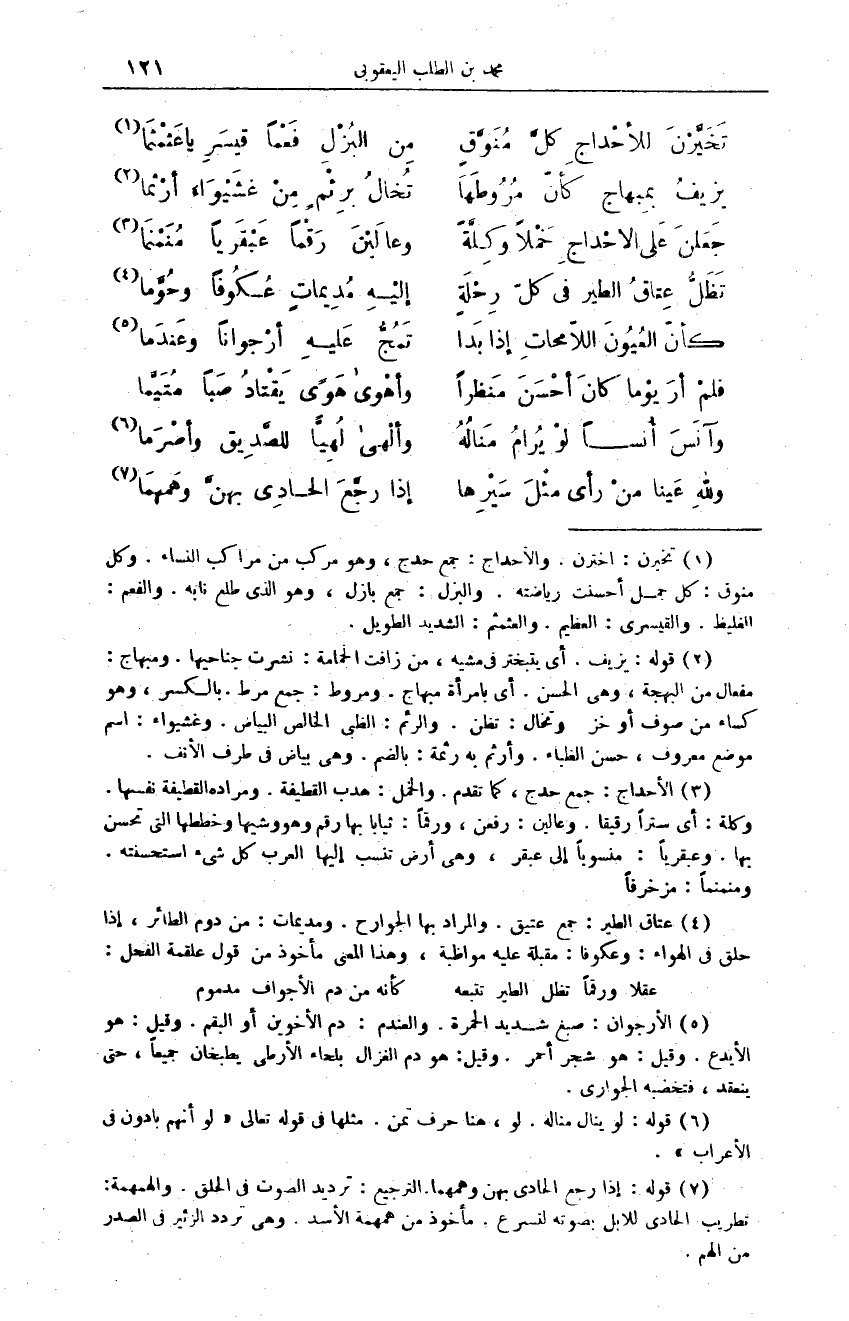 محمد بن الطلب اليعقوبى ١٢١
تَخَيَّرْنَ للأحْداجِ كلَّ مُنَوَّقٍ مِن البُزْلِ فَعْماً قيسَرِياً عَثَمْثَما(١)
يزيفُ بمبهاج كأنّ مُرُوطَهَا تُخالُ برِئْمٍ مِنْ غشَيْوَاء أرْثما(٢)
جَعَلنَ عَلى الاحْداجِ خَمْلاً وكِلَّةً وعالَيْنَ رَقْماً عَبْقَرياً مُنَمْنَما(٣)
تَظَلُّ عِتاقُ الطير فى كلّ رِحْلَةٍ إليْهِ مُديماتٍ عُكُوفاً وحُوَّما(٤)
كأنّ العُيُونَ اللاّمحاتِ إذا بَدا تَمُجُّ عَليهِ أرْجواناً وعَندَما(٥)
فلمْ أرَ يوْما كانَ أحْسَنَ مَنظراً وأهْوىٰ هَوًى يَقْتادُ صَبًّا مُتَيَّما
وآنَسَ أُنساً لوْ يُرامُ مَنالُهُ وألْهىٰ لُهِيًّا للصَّديقِ وأصْرَما(٦)
وللهِ عَينا منْ رأى مثْلَ سَيْرِها إذا رجَّعَ الحادِى بهنَّ وهَمهما(٧)
(١) تخيرن : اخترن . والأحداج : جمع حدج ، وهو مركب من مراكب النساء . وكل
منوق : كل جمل أحسنت رياضته . والبزل : جمع بازل ، وهو الذى طلع نابه . والفعم :
الغليظ . والقيسرى : العظيم . والعثمثم : الشديد الطويل .
(٢) قوله : يزيف . أى يتبختر فى مشيه ، من زافت الحمامة : نشرت جناحيها . ومبهاج :
مفعال من البهجة ، وهى الحسن . أى بامرأة مبهاج . ومروط : جمع مرط . بالكسر ، وهو
كساء من صوف أو خز وتخال : تظن . والرئم : الظبى الخالص البياض . وغشيواء : اسم
موضع معروف ، حسن الظباء . وأرثم به رثمة : بالضم . وهى بياض فى طرف الأنف .
(٣) الأحداج : جمع حدج ، كما تقدم . والخمل : هدب القطيفة . ومراده القطيفة نفسها .
وكلة : أى ستراً رقيقا . وعالين : رفعن ، ورقماً : ثيابا بها رقم وهو وشيها وخططها التى تحسن
بها . وعبقرياً : منسوباً إلى عبقر ، وهى أرض تنسب إليها العرب كل شىء استحسنته .
ومنمنماً : مزخرفاً
(٤) عتاق الطير : جمع عتيق . والمراد بها الجوارح . ومديمات : من دوم الطائر ، إذا
حلق فى الهواء : وعكوفا : مقبلة عليه مواظبة ، وهذا المعنى مأخوذ من قول علقمة الفحل :
عقلا ورقماً تظل الطير تتبعه كأنه من دم الأجواف مدموم
(٥) الأرجوان : صبغ شديد الحمرة . والعندم : دم الأخوين أو البقم . وقيل : هو
الأيدع . وقيل : هو شجر أحمر . وقيل : هو دم الغزال بلحاء الأرطى يطبخان جميعاً ، حتى
ينعقد ، فتخضبه الجوارى .
(٦) قوله : لو ينال مناله . لو ، هنا حرف تمن . مثلها فى قوله تعالى « لو أنهم بادون فى
الأعراب » .
(٧) قوله : إذا رجع الحادى بهن وهمهما . الترجيع : ترديد الصوت فى الحلق . والهمهمة :
تطريب الحادى للابل بصوته لتسرع . مأخوذ من همهمة الأسد . وهى تردد الزئير فى الصدر
من الهم .